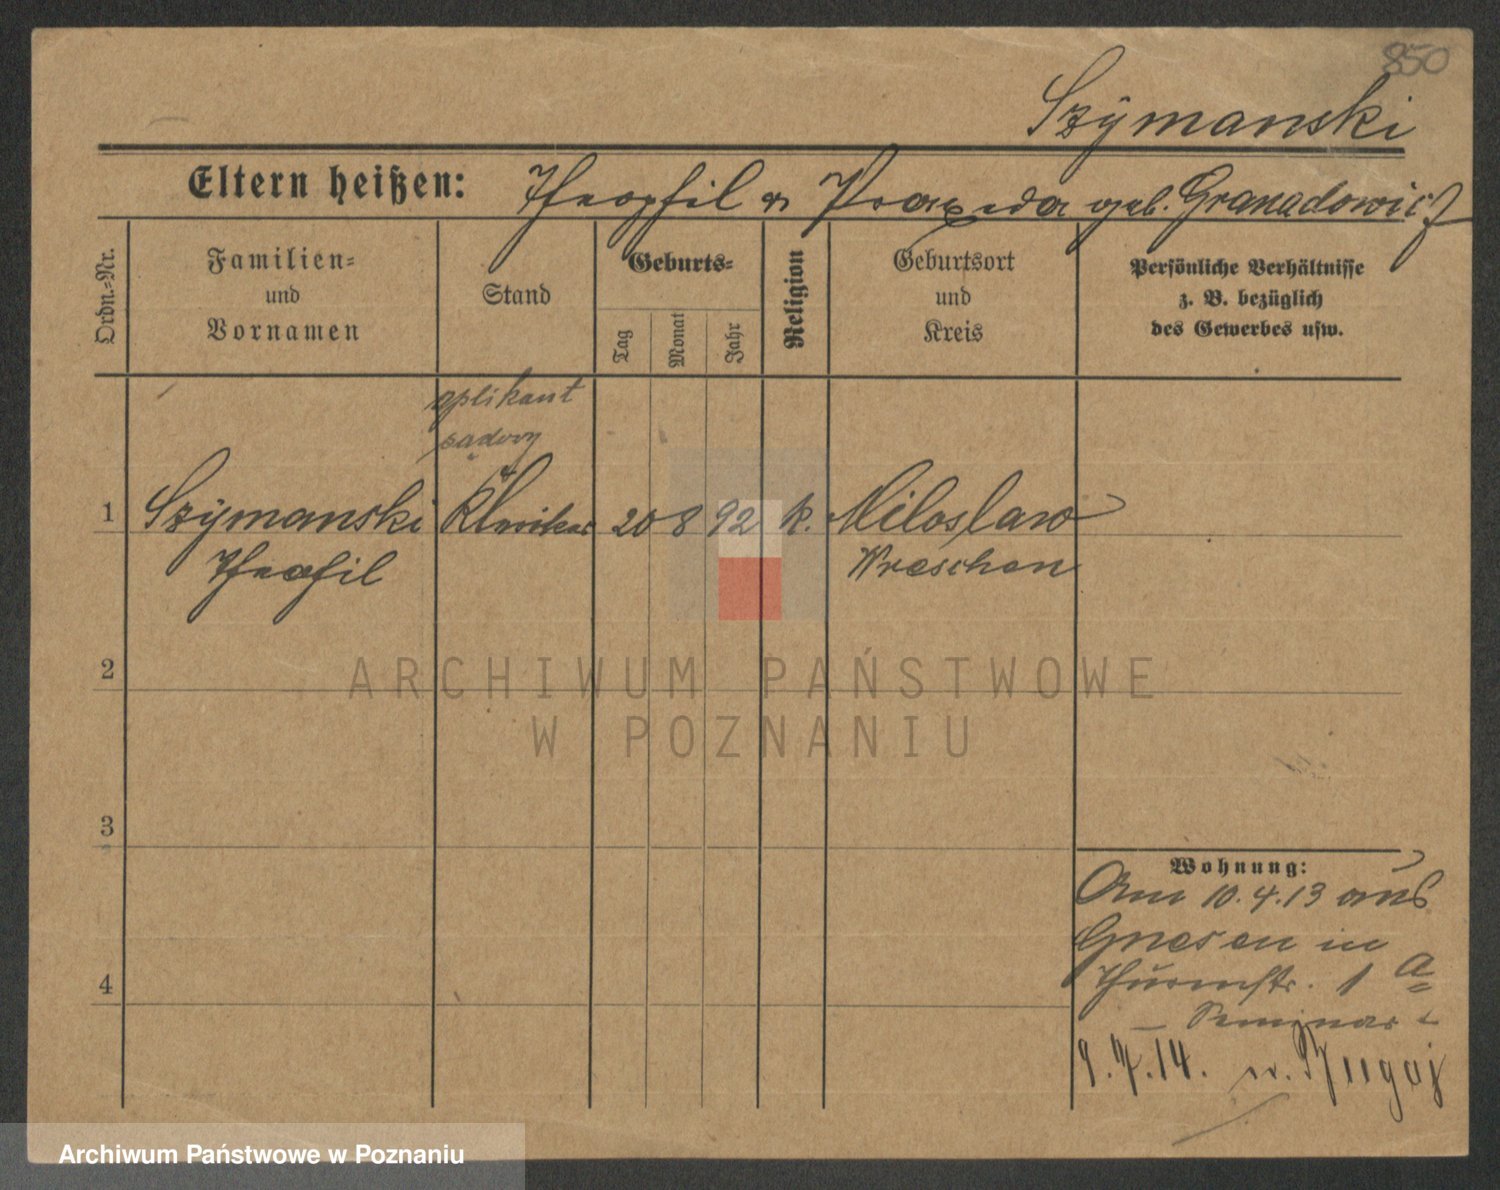 850
Szymanski
Eltern heißen: Theophil u Praxeda geb. Granadowicz
Ordn.-Nr.
Familien- und Vornamen
Stand
Geburts-
Tag
Monat
Jahr
Religion
Geburtsort und Kreis
Persönliche Verhältnisse
z. B. bezüglich
des Gewerbes usw.
aplikant
sądowy
1 Szymanski Kleriker 20 8 92 k. Miloslaw
Theofil Wreschen
2
ARCHIWUM PAŃSTWOWE
W POZNANIU
3
Wohnung:
Am 10.4.13 aus
Gnesen in
Thurmstr. 1 a
Seminar
9.7.14. n.
4
Archiwum Państwowe w Poznaniu